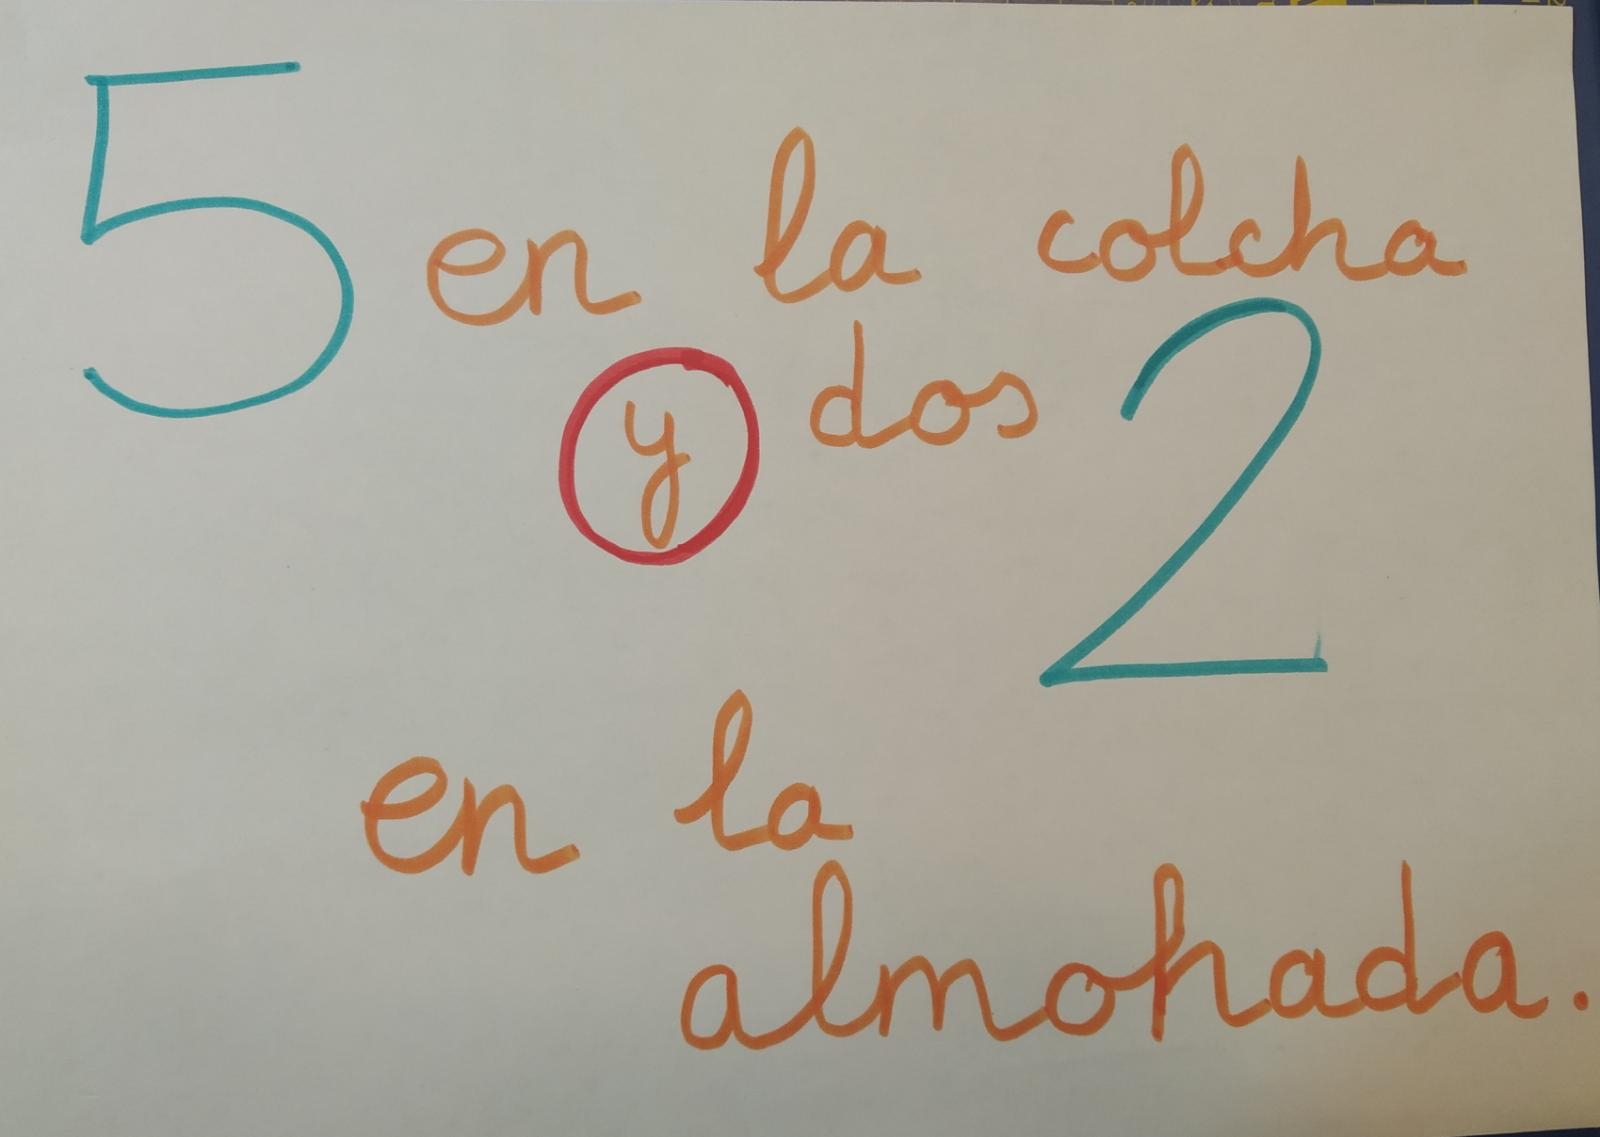 5 en la colcha
y dos 2
en la
almohada.